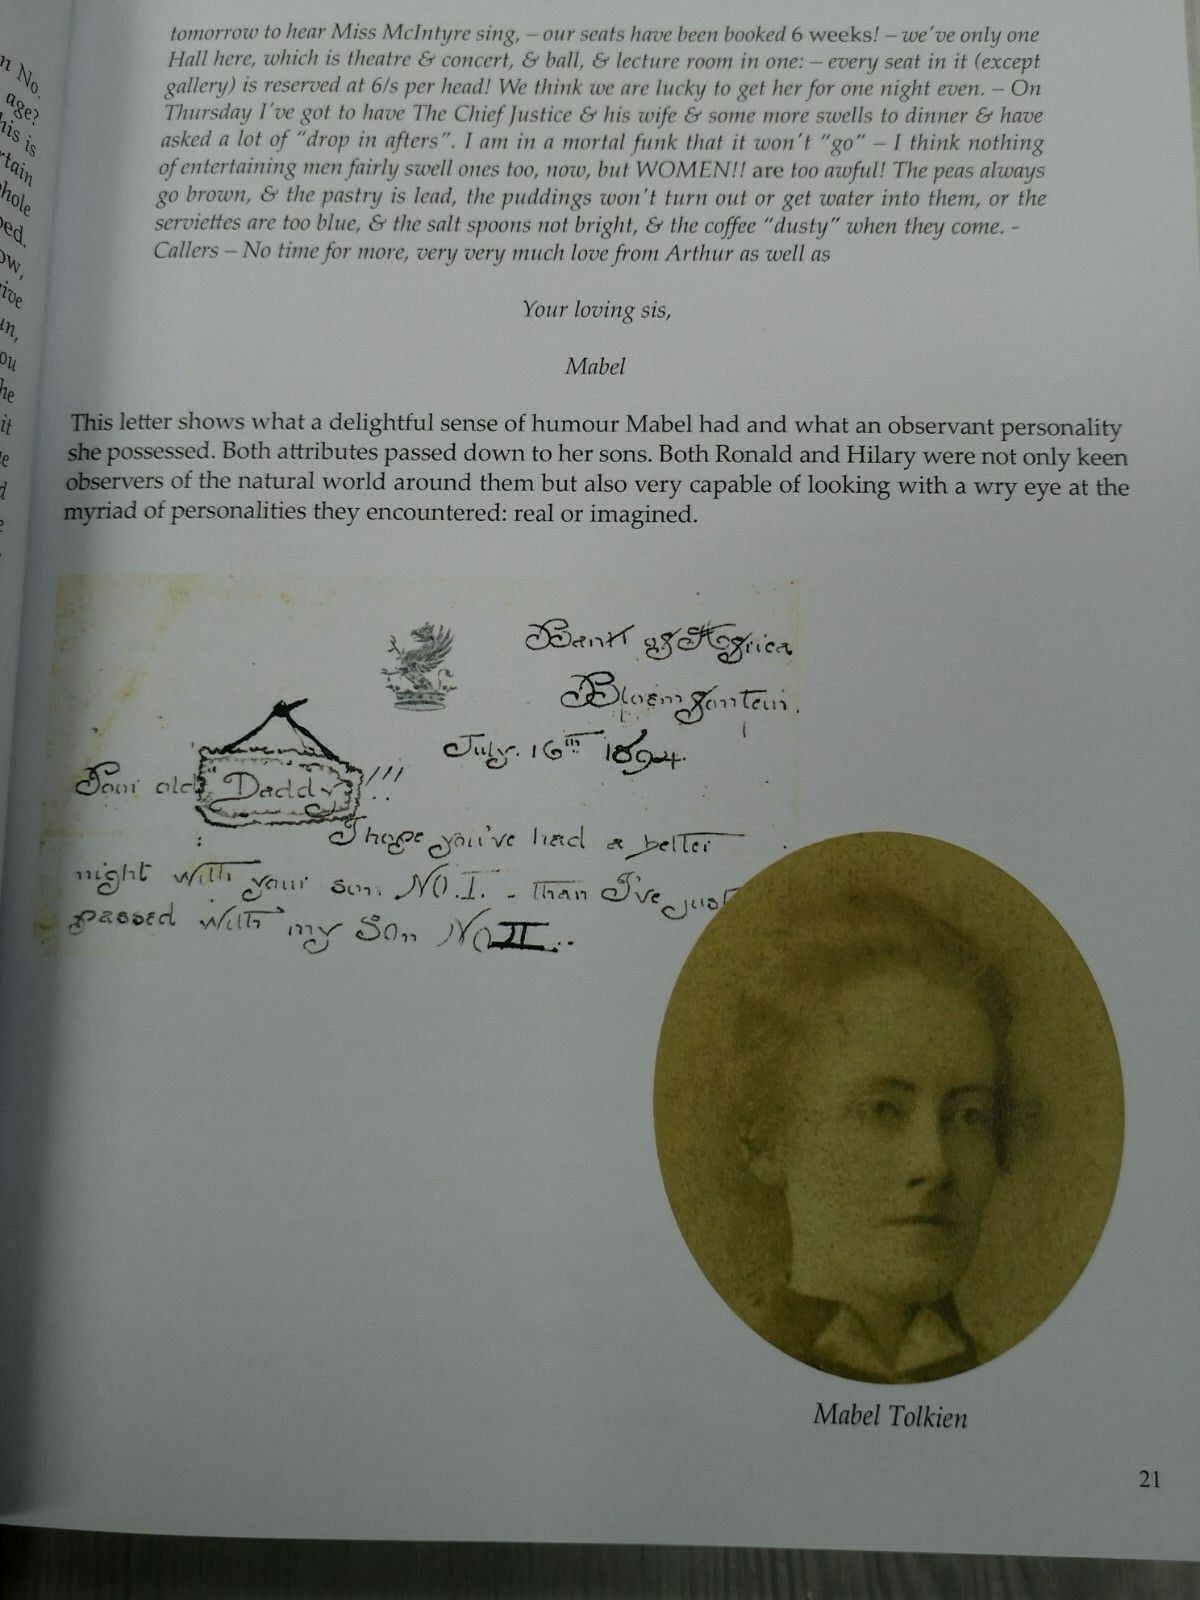 n No.
age?
his is
rtain
hole
ped.
ow,
rive
un,
ou
he
it
e
d
e
tomorrow to hear Miss McIntyre sing, – our seats have been booked 6 weeks! – we've only one
Hall here, which is theatre & concert, & ball, & lecture room in one: – every seat in it (except
gallery) is reserved at 6/s per head! We think we are lucky to get her for one night even. – On
Thursday I've got to have The Chief Justice & his wife & some more swells to dinner & have
asked a lot of "drop in afters". I am in a mortal funk that it won't "go" – I think nothing
of entertaining men fairly swell ones too, now, but WOMEN!! are too awful! The peas always
go brown, & the pastry is lead, the puddings won't turn out or get water into them, or the
serviettes are too blue, & the salt spoons not bright, & the coffee "dusty" when they come. -
Callers – No time for more, very very much love from Arthur as well as
Your loving sis,
Mabel
This letter shows what a delightful sense of humour Mabel had and what an observant personality
she possessed. Both attributes passed down to her sons. Both Ronald and Hilary were not only keen
observers of the natural world around them but also very capable of looking with a wry eye at the
myriad of personalities they encountered: real or imagined.
Bank of Africa
Bloemfontein.
July. 16th 1894.
Poor old "Daddy"!!!
I hope you've had a better
night with your son NO. I. - than I've just
passed with my Son NO II...
Mabel Tolkien
21